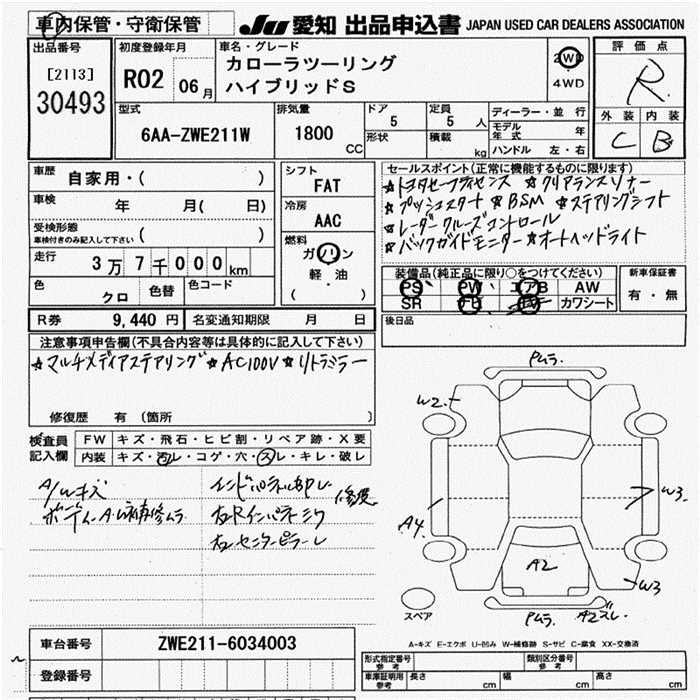 車内保管・守衛保管
JU 愛知 出品申込書 JAPAN USED CAR DEALERS ASSOCIATION
出品番号
[2113]
30493
初度登録年月
R02 06月
車名・グレード
カローラツーリング
ハイブリッドS
2WD
4WD
評価点
R
外装 内装
C B
型式
6AA-ZWE211W
排気量
1800
CC
ドア
5
形状
定員
5 人
積載
kg
ディーラー・並行
モデル年式 年
ハンドル 左・右
車歴
自家用・( )
車検
年 月( 日)
受検形態
車検付きのみ記入して下さい ( )
走行
3万7千000km
色
クロ
色替
色コード
シフト
FAT
冷房
AAC
燃料
ガソリン
軽・油
( )
セールスポイント(正常に機能するものに限ります)
☆トヨタセーフティセンス ☆クリアランスソナー
☆プッシュスタート ☆BSM ☆ステアリングシフト
☆レーダークルーズコントロール
☆バックガイドモニター ☆オートヘッドライト
装備品(純正品に限り○をつけてください)
PS PW エアB AW
SR カワシート
新車保証書
有・無
R券 9,440円
名変通知期限 月 日
後日品
注意事項申告欄(不具合内容等は具体的に記入して下さい)
☆マルチメディアステアリング ☆AC100V ☆リトラミラー
修復歴 有(箇所
検査員
記入欄
FW キズ・飛石・ヒビ割・リペア跡・X要
内装 キズ・汚レ・コゲ・穴・スレ・キレ・破レ
A/Wキズ
右Rインパネ
右センターピラーレ
Pムラ
W2
A4
W3
A2
W3
Pムラ
A2スレ
スペア
A-キズ E-エクボ U-凹み W-補修跡 S-サビ C-腐食 XX-交換済
車台番号 ZWE211-6034003
登録番号
形式指定番号
参考
類別区分番号
参考
車庫証明用
参考
長さ cm
幅 cm
高さ cm